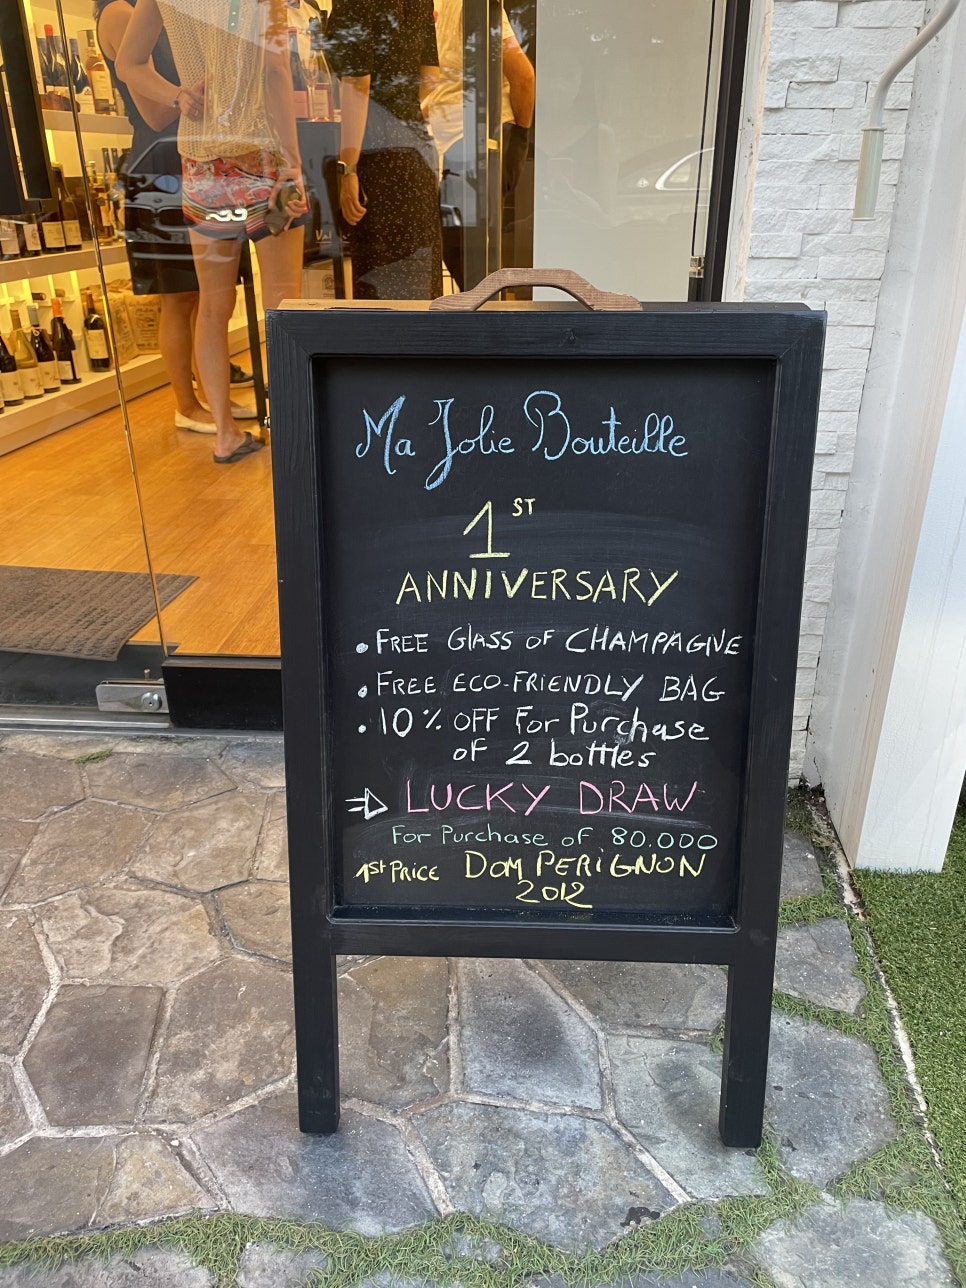 Ma Jolie Bouteille
1ST
ANNIVERSARY
• FREE GLASS OF CHAMPAGNE
• FREE ECO-FRIENDLY BAG
• 10% OFF For Purchase
of 2 bottles
⇒ LUCKY DRAW
For Purchase of 80.000
1st PRICE DOM PERIGNON
2012